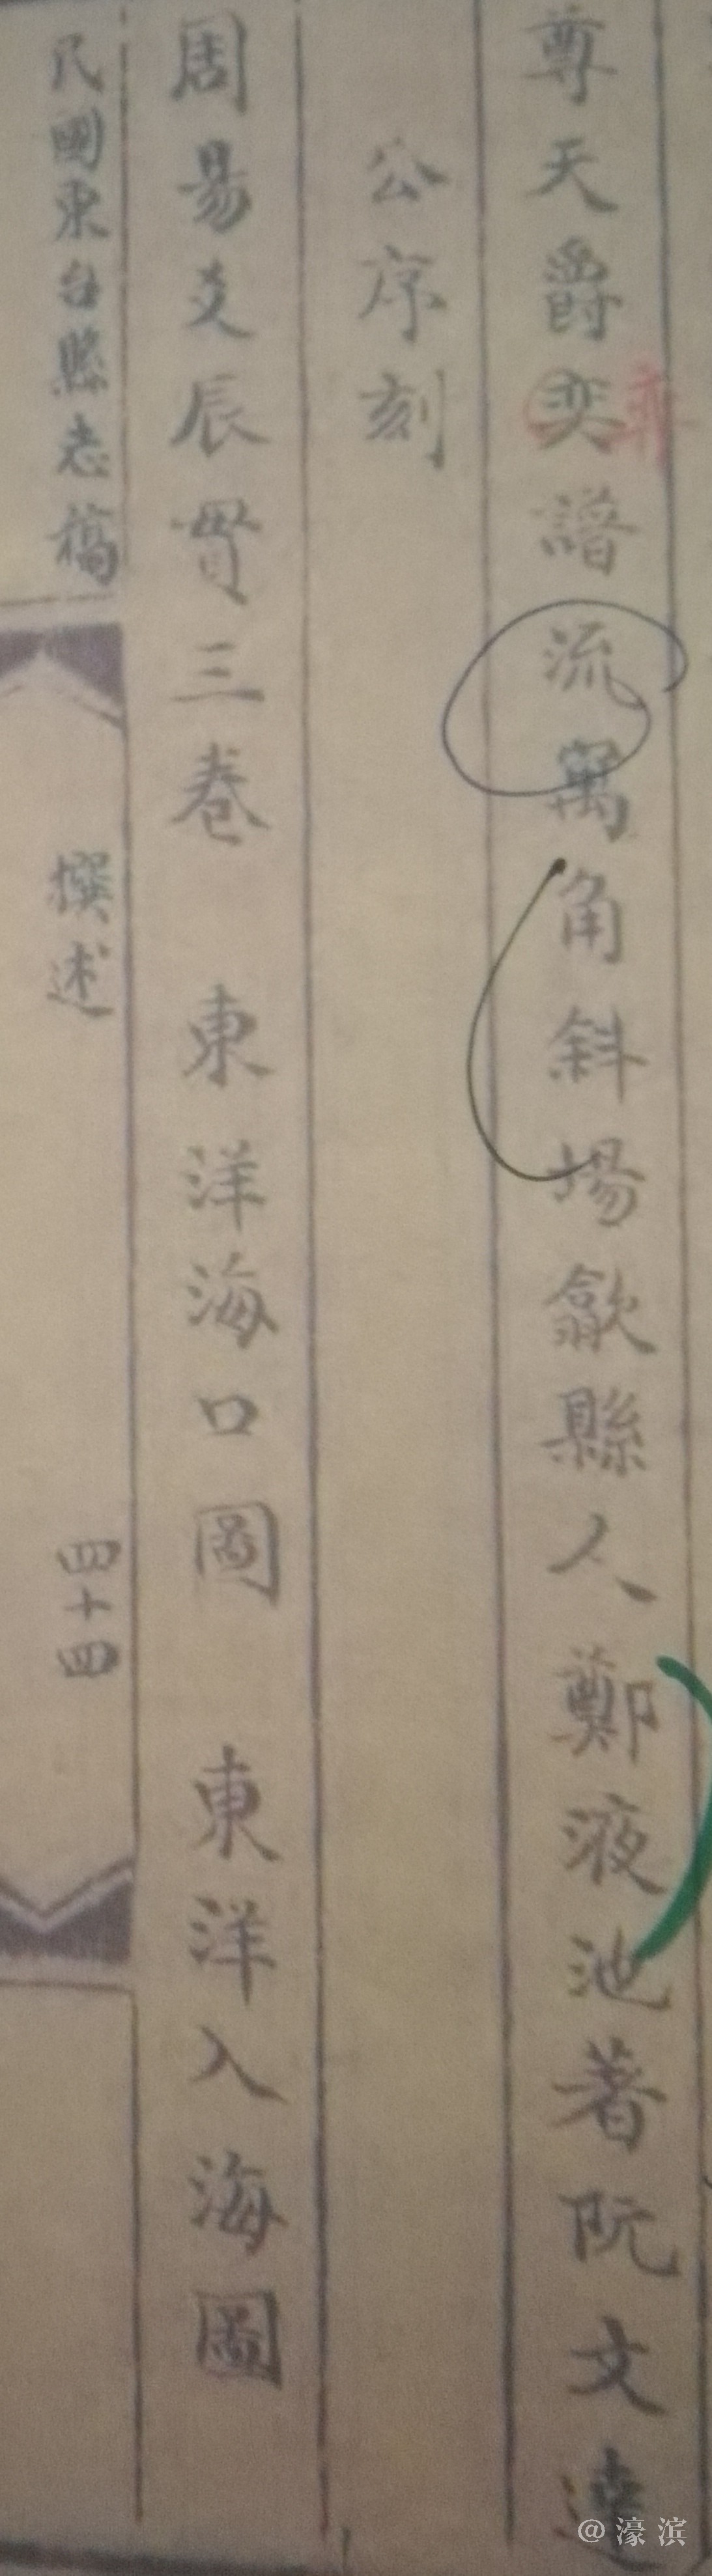 尊天爵奕譜流寓角斜場歙縣人鄭液池著阮文達
弈
公序刻
周易爻辰貫三卷　東洋海口圖　東洋入海圖
民國東台縣志稿　撰述　四十四
@濠滨